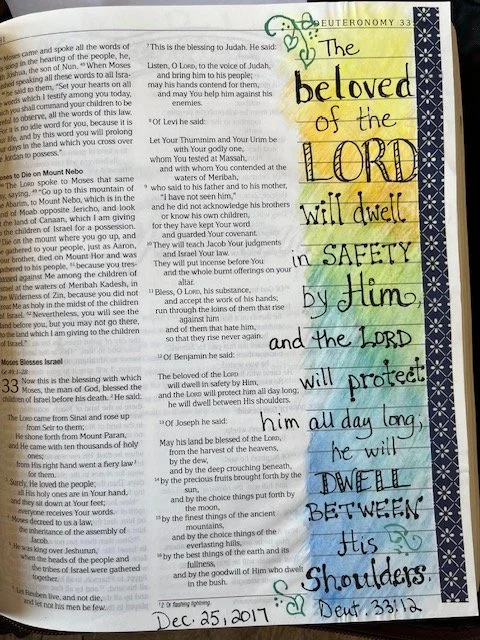 DEUTERONOMY 33
Moses came and spoke all the words of
song in the hearing of the people, he,
Joshua, the son of Nun. When Moses
finished speaking all these words to all Isra-
he said to them, "Set your hearts on all
words which I testify among you today,
which you shall command your children to be
to observe, all the words of this law.
For it is no idle word for you, because it is
life, and by this word you will prolong
your days in the land which you cross over
Jordan to possess."
to Die on Mount Nebo
The LORD spoke to Moses that same
day, saying, "Go up to this mountain of
the Abarim, to Mount Nebo, which is in the
land of Moab opposite Jericho, and look
the land of Canaan, which I am giving
the children of Israel for a possession.
Die on the mount where you go up, and
be gathered to your people, just as Aaron,
your brother, died on Mount Hor and was
gathered to his people, because you tres-
passed against Me among the children of
Israel at the waters of Meribah Kadesh, in
the Wilderness of Zin, because you did not
treat Me as holy in the midst of the children
of Israel. Nevertheless, you will see the
land before you, but you may not go there,
to the land which I am giving to the children
of Israel."
Moses Blesses Israel
Ge 49:1–28
33 Now this is the blessing with which
Moses, the man of God, blessed the
children of Israel before his death. 2 He said:
The LORD came from Sinai and rose up
from Seir to them;
He shone forth from Mount Paran,
and He came with ten thousands of holy
ones;
from His right hand went a fiery law
for them.
Surely, He loved the people;
all His holy ones are in Your hand,
and they sit down at Your feet;
everyone receives Your words.
Moses decreed to us a law,
the inheritance of the assembly of
Jacob.
He was king over Jeshurun,
when the heads of the people and
the tribes of Israel were gathered
together.
Let Reuben live, and not die,
and let not his men be few.
7 This is the blessing to Judah. He said:
Listen, O LORD, to the voice of Judah,
and bring him to his people;
may his hands contend for them,
and may You help him against his
enemies.
8 Of Levi he said:
Let Your Thummim and Your Urim be
with Your godly one,
whom You tested at Massah,
and with whom You contended at the
waters of Meribah,
9 who said to his father and to his mother,
"I have not seen him,"
and he did not acknowledge his brothers
or know his own children,
for they have kept Your word
and guarded Your covenant.
10 They will teach Jacob Your judgments
and Israel Your law.
They will put incense before You
and the whole burnt offerings on your
altar.
11 Bless, O LORD, his substance,
and accept the work of his hands;
run through the loins of them that rise
against him
and of them that hate him,
so that they rise never again.
12 Of Benjamin he said:
The beloved of the LORD
will dwell in safety by Him,
and the LORD will protect him all day long;
he will dwell between His shoulders.
13 Of Joseph he said:
May his land be blessed of the LORD,
from the harvest of the heavens,
by the dew,
and by the deep crouching beneath,
14 by the precious fruits brought forth by the
sun,
and by the choice things put forth by
the moon,
15 by the finest things of the ancient
mountains,
and by the choice things of the
everlasting hills,
16 by the best things of the earth and its
fullness,
and by the goodwill of Him who dwelt
in the bush.
2 Or flashing lightning.
Dec. 25, 2017
The
beloved
of the
LORD
will dwell
in SAFETY
by Him,
and the LORD
will protect
him all day long;
he will
DWELL
BETWEEN
His
Shoulders.
Deut. 33:12